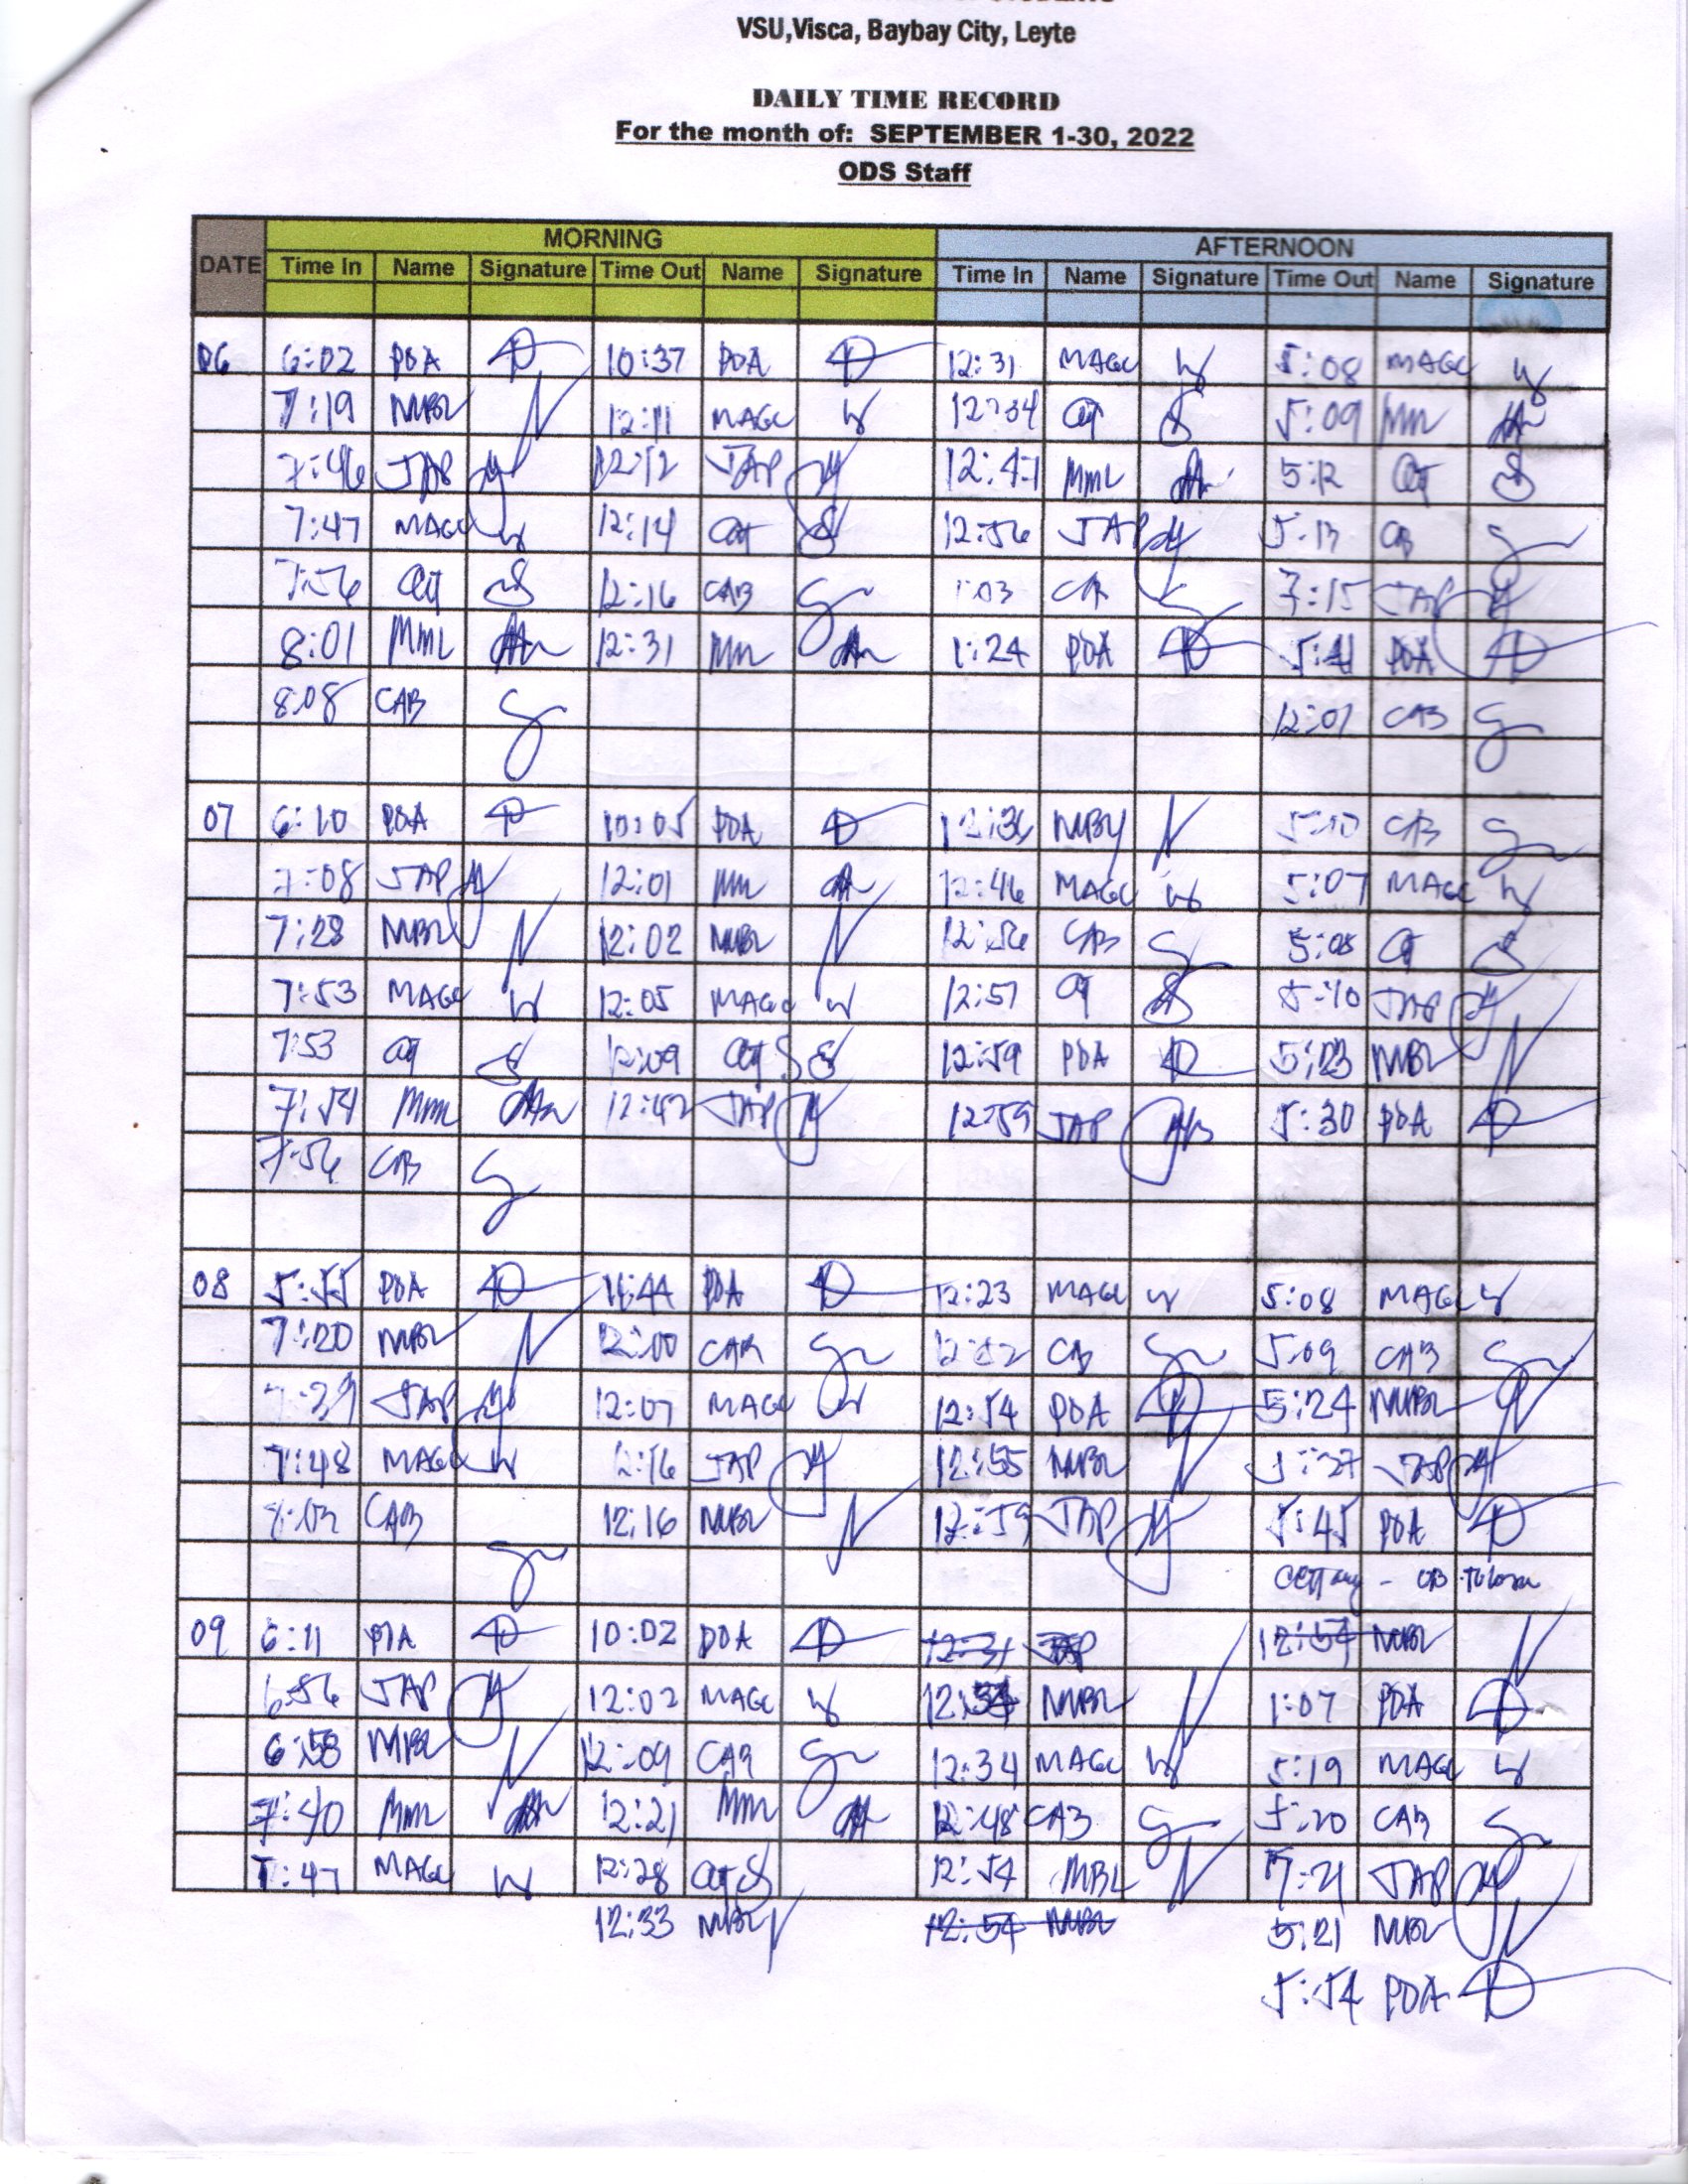 VSU,Visca, Baybay City, Leyte
DAILY TIME RECORD
For the month of: SEPTEMBER 1-30, 2022
ODS Staff
DATE MORNING AFTERNOON
Time In Name Signature Time Out Name Signature Time In Name Signature Time Out Name Signature
06 6:02 PDA 10:37 PDA 12:31 MAGC 5:08 MAGC
7:19 NMBL 12:11 MAGC 12:34 5:09 MM
7:46 JAP 12:12 JAP 12:47 MML 5:12
7:47 MAGC 12:14 12:56 JAP 5:13 CB
7:56 12:16 CAB 1:03 CB 7:15 JAP
8:01 MML 12:31 MM 1:24 PDA 5:41 PDA
8:08 CAB 12:01 CAB
07 6:10 PDA 10:05 PDA 12:36 5:10 CAB
7:08 JAP 12:01 MM 12:46 MAGC 5:07 MAGC
7:28 NMBL 12:02 NMBL 12:56 CAB 5:08
7:53 MAGC 12:05 MAGC 12:57 5:10 JAP
7:53 12:09 12:59 PDA 5:23 NMBL
7:54 MML 12:42 JAP 12:59 JAP 5:30 PDA
7:56 CAB
08 5:55 PDA 11:44 PDA 12:23 MAGC 5:08 MAGC
7:20 NMBL 12:00 CAB CB 5:09 CAB
7:39 JAP 12:07 MAGC 12:54 PDA 5:24 NMBL
7:48 MAGC 12:16 JAP 12:55 NMBL 5:27 JAP
8:03 CAB 12:16 NMBL 12:59 JAP 5:45 PDA
09 6:11 PDA 10:02 PDA 12:31 JAP 12:54 NMBL
6:56 JAP 12:02 MAGC NMBL 1:07 PDA
6:58 NMBL 12:09 CAB 12:34 MAGC 5:19 MAGC
7:40 MML 12:21 MM 12:48 CAB 5:20 CAB
7:47 MAGC 12:28 12:54 MBL JAP
12:33 NMBL 12:54 NMBL 5:21 NMBL
5:54 PDA